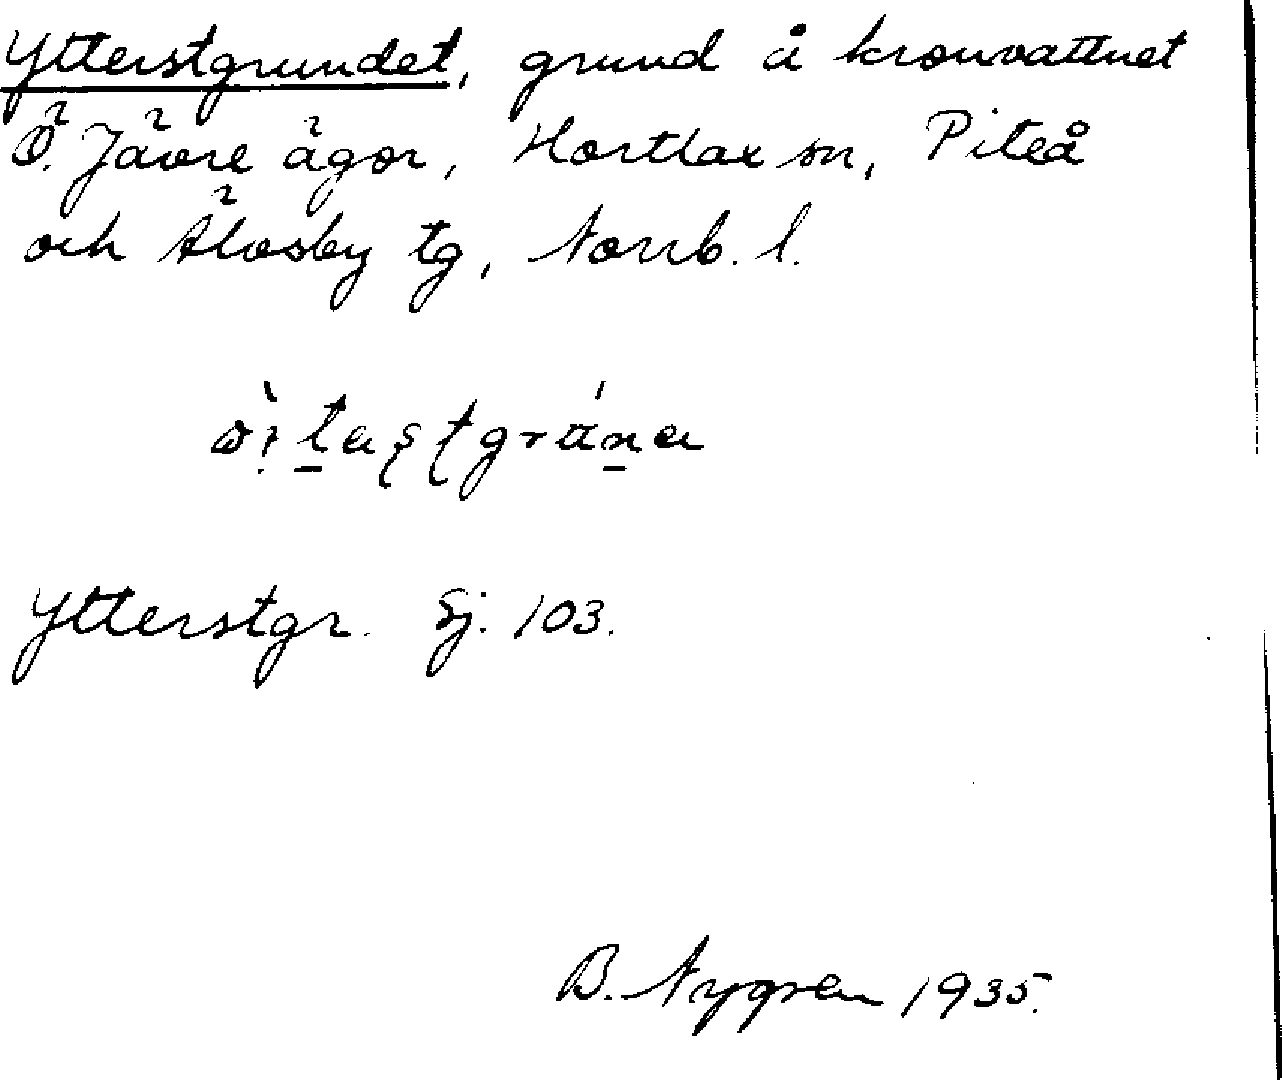 Ytterstgrundet, grund å kronvattnet
Ö. Jävre ägor, Hortlax sn, Piteå
och Älvsby tg, Norrb. l.
Ytterstgr. Sj. 103.
B. Nygren 1935.